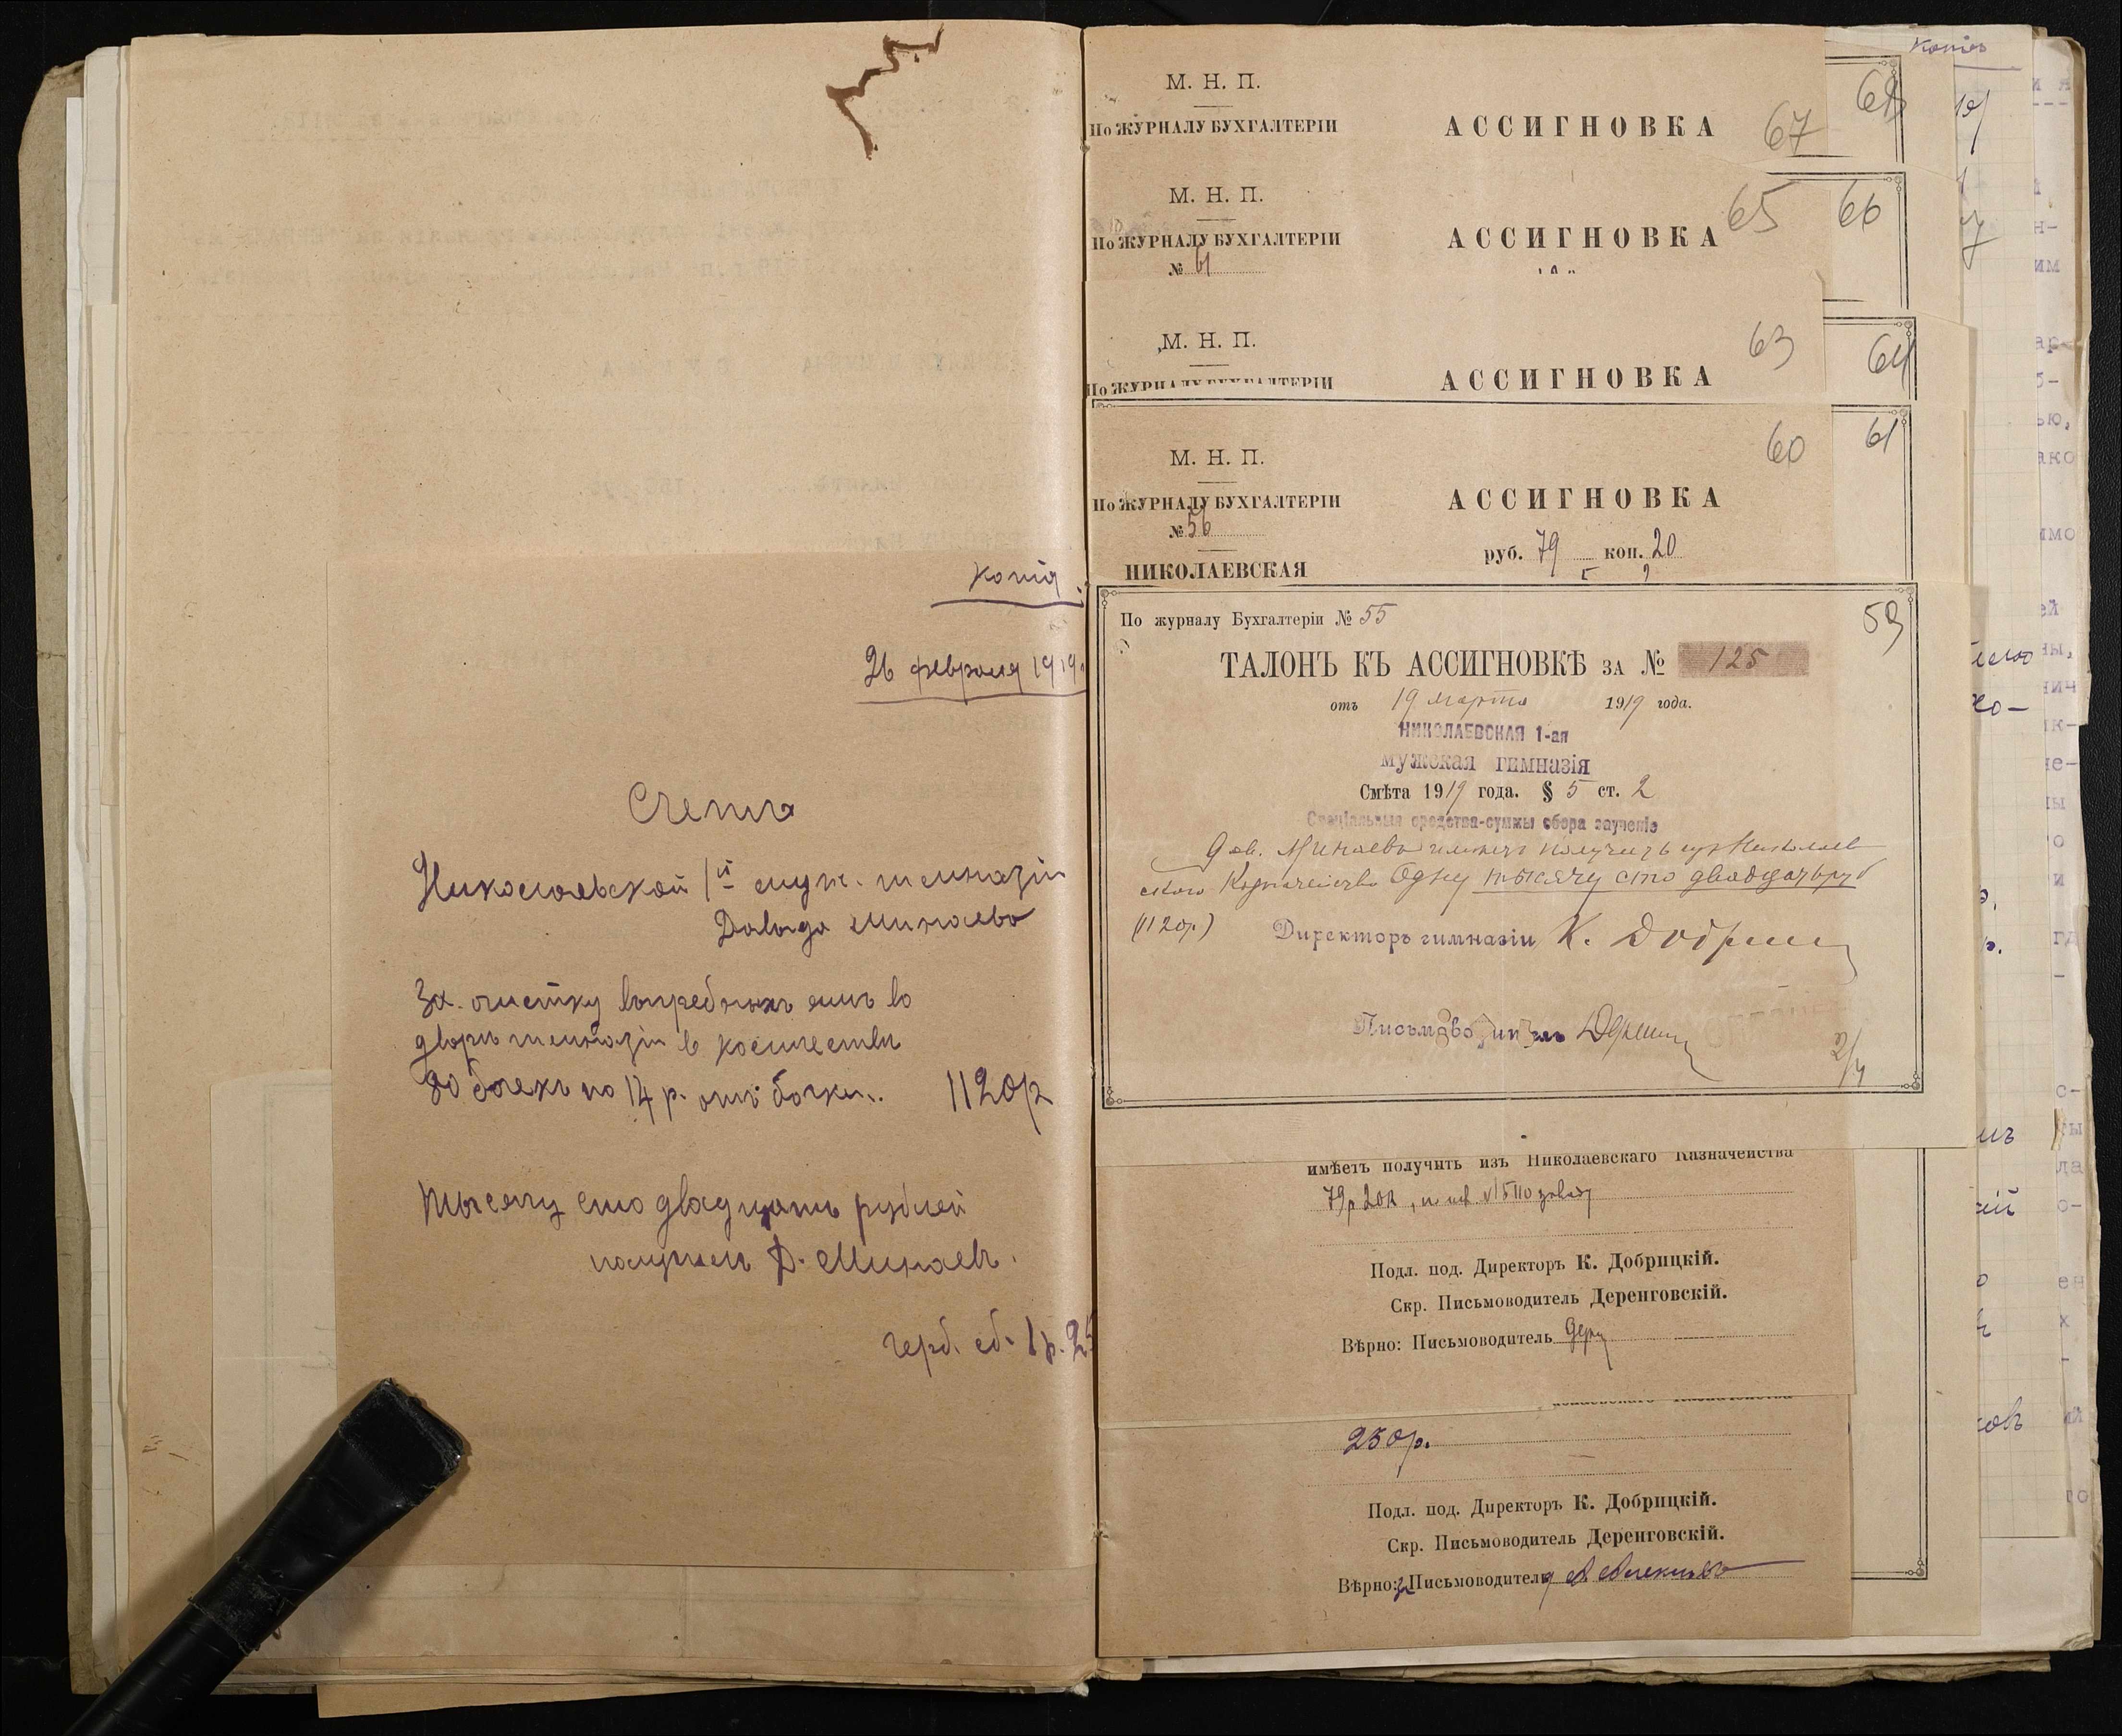 Копія
26 февраля 1919
Счетъ
Николаевской 1й муж. гимназіи
Давида Минаева
За очистку выгребныхъ ямъ во
дворѣ гимназіи в количествѣ
80 бочекъ по 14 р. отъ бочки.. 1120р
Тысячу сто двадцать рублей
получилъ Д. Минаевъ.
герб. сб. 1р. 25
Копія
М. Н. П.
По ЖУРНАЛУ БУХГАЛТЕРІИ
АССИГНОВКА
67
68
М. Н. П.
По ЖУРНАЛУ БУХГАЛТЕРІИ
№ 61
АССИГНОВКА
65
66
М. Н. П.
По ЖУРНАЛУ БУХГАЛТЕРІИ
АССИГНОВКА
63
64
М. Н. П.
По ЖУРНАЛУ БУХГАЛТЕРІИ
№ 56
НИКОЛАЕВСКАЯ
АССИГНОВКА
руб. 79 коп. 20
60
61
По журналу Бухгалтеріи № 55
59
ТАЛОНЪ КЪ АССИГНОВКѢ ЗА № 125
отъ 19 марта 1919 года.
НИКОЛАЕВСКАЯ 1-ая
мужская гимназія
Смѣта 1919 года. § 5 ст. 2
Спеціальныя средства-суммы сбора заученіе
Дав. Минаевъ имѣетъ получить изъ Николаев
скаго Казначейства Одну тысячу сто двадцать руб
(1120р)
Директоръ гимназіи К. Добриц
Письмоводитель Дерен
2/4
имѣетъ получить изъ Николаевскаго Казначейства
79р 20к
Подл. под. Директоръ К. Добрицкій.
Скр. Письмоводитель Деренговскій.
Вѣрно: Письмоводитель Дерен
230р.
Подл. под. Директоръ К. Добрицкій.
Скр. Письмоводитель Деренговскій.
Вѣрно: Письмоводителя